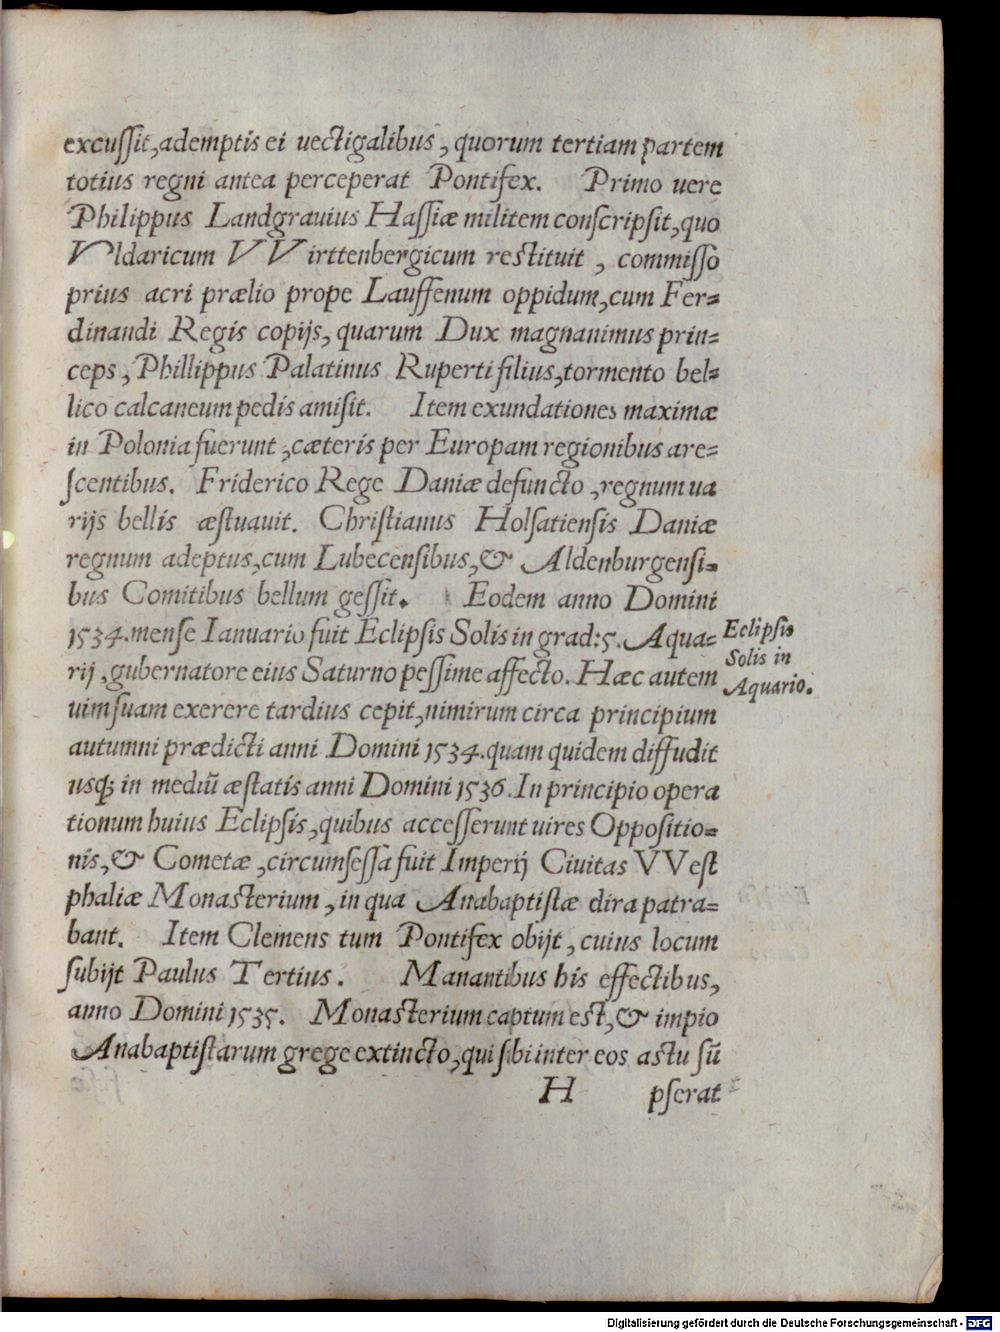 excussit, ademptis ei uectigalibus, quorum tertiam partem
totius regni antea perceperat Pontifex. Primo uere
Philippus Landgrauius Hassiæ militem conscripsit, quo
Vldaricum VVirttenbergicum restituit, commisso
prius acri prælio prope Lauffenum oppidum, cum Fer=
dinandi Regis copijs, quarum Dux magnanimus prin=
ceps, Phillippus Palatinus Ruperti filius, tormento bel=
lico calcaneum pedis amisit. Item exundationes maximæ
in Polonia fuerunt, cæteris per Europam regionibus are=
scentibus. Friderico Rege Daniæ defuncto, regnum ua
rijs bellis æstuauit. Christianus Holsatiensis Daniæ
regnum adeptus, cum Lubecensibus, & Aldenburgensi=
bus Comitibus bellum gessit. Eodem anno Domini
1534. mense Ianuario fuit Eclipsis Solis in grad: 5. Aqua=
rij, gubernatore eius Saturno pessime affecto. Hæc autem
uim suam exerere tardius cepit, nimirum circa principium
autumni prædicti anni Domini 1534. quam quidem diffudit
usq; in mediū æstatis anni Domini 1536. In principio opera
tionum huius Eclipsis, quibus accesserunt uires Oppositio=
nis, & Cometæ, circumsessa fuit Imperij Ciuitas VVest
phaliæ Monasterium, in qua Anabaptistæ dira patra=
bant. Item Clemens tum Pontifex obijt, cuius locum
subijt Paulus Tertius. Manantibus his effectibus,
anno Domini 1535. Monasterium captum est, & impio
Anabaptistarum grege extincto, qui sibi inter eos astu sū
H pserat
Eclipsis
Solis in
Aquario.
Digitalisierung gefördert durch die Deutsche Forschungsgemeinschaft - DFG